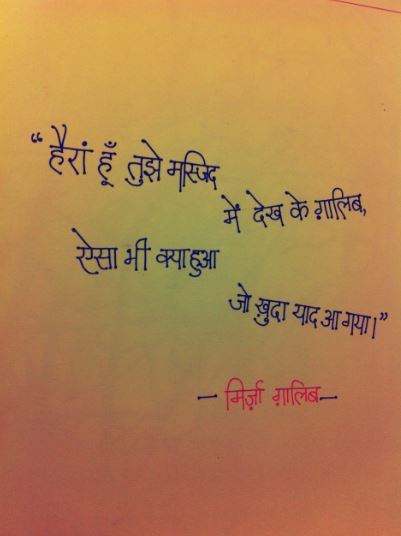 “हैरां हूँ तुझे मस्जिद
में देख के ग़ालिब,
ऐसा भी क्या हुआ
जो ख़ुदा याद आ गया।”
– मिर्ज़ा ग़ालिब –